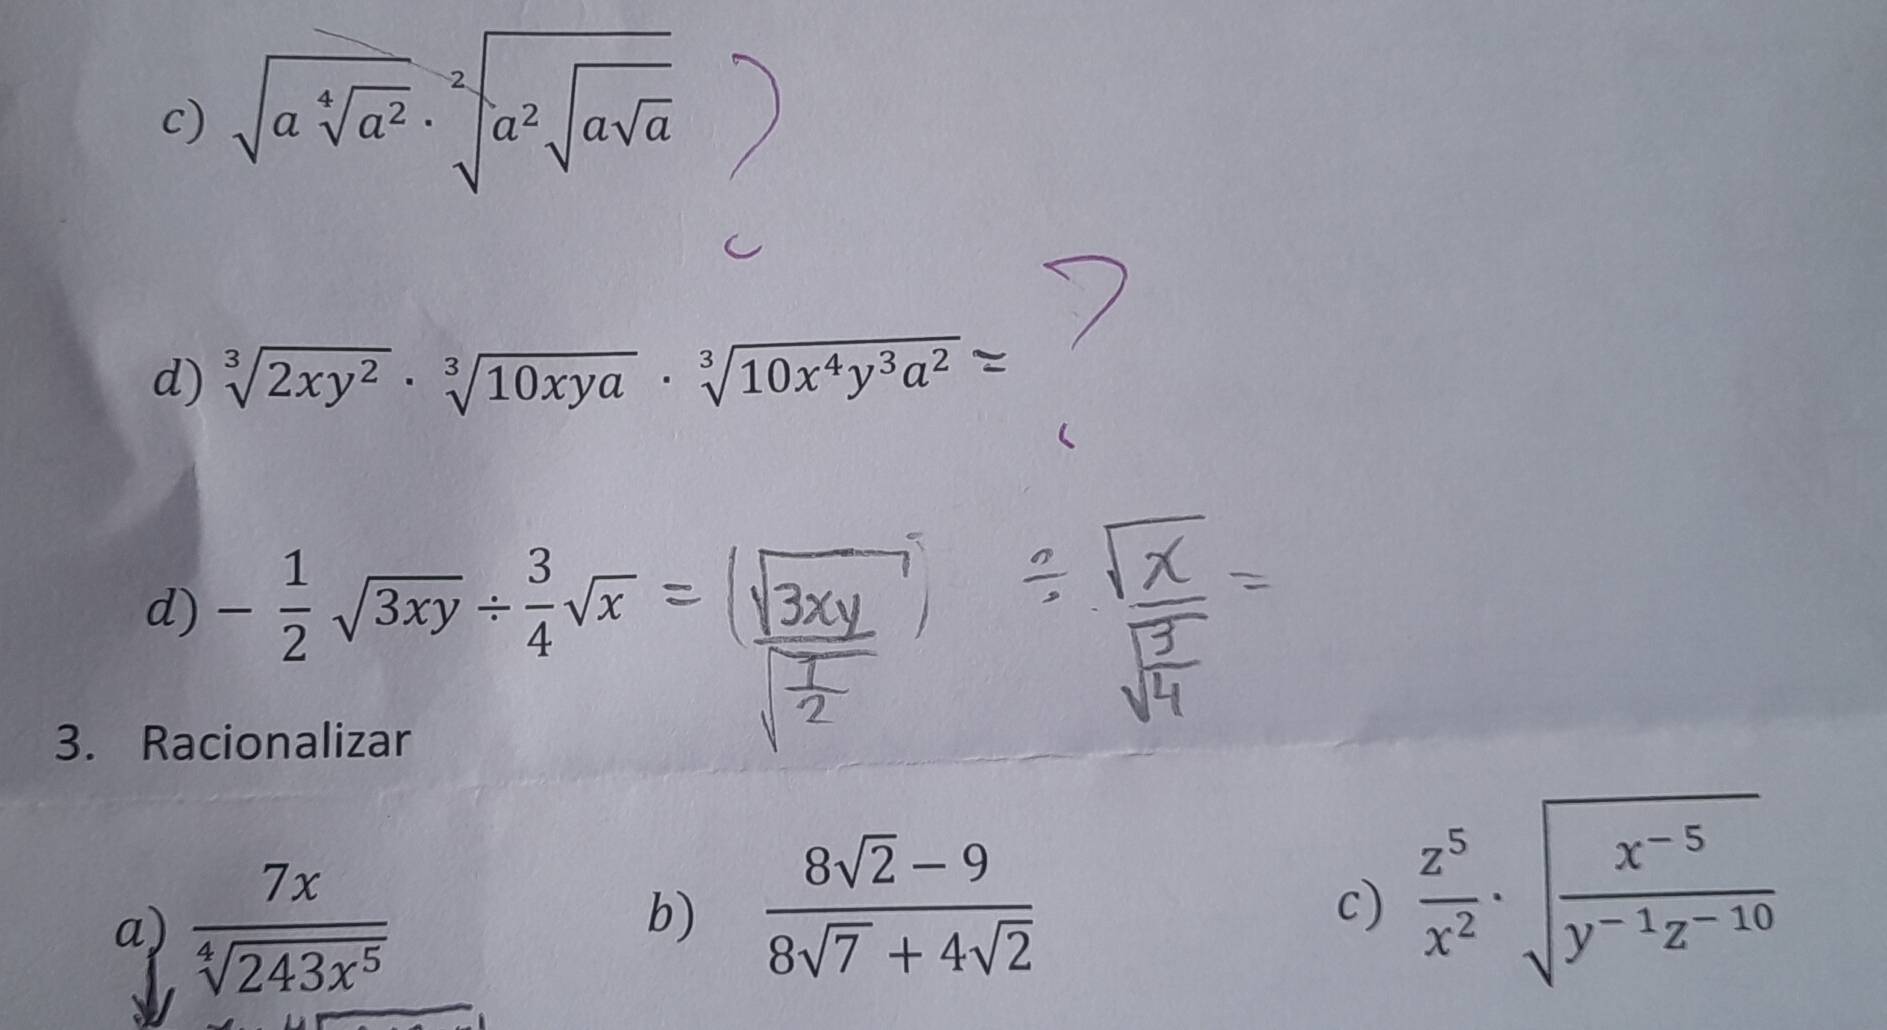 c) √(a ⁴√(a²)) · ²√(a² √(a√a)) ?
d) ³√(2xy²) · ³√(10xya) · ³√(10x⁴y³a²) = ?
d) − 1/2 √(3xy) ÷ 3/4 √x = (√(3xy) / √(1/2)) ÷ √x / √(3/4) =
3. Racionalizar
a) 7x / ⁴√(243x⁵) b) (8√2 − 9) / (8√7 + 4√2) c) z⁵/x² · √(x⁻⁵ / (y⁻¹z⁻¹⁰))